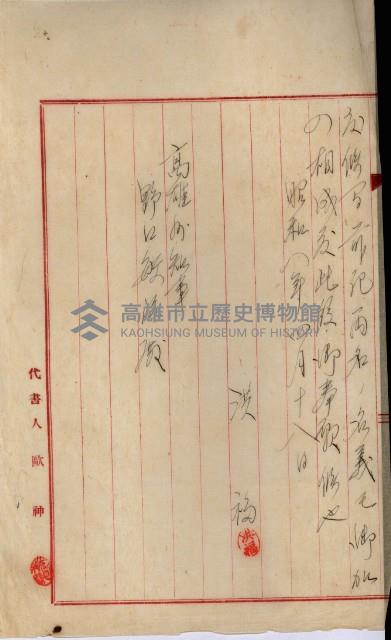 度候間前記両名ノ名義ニ御加
ノ相成度此段御願候也
昭和八年四月十八日
洪福
高雄州知事
野口敏雄殿
代書人歐神
高雄市立歷史博物館
KAOHSIUNG MUSEUM OF HISTORY
洪福